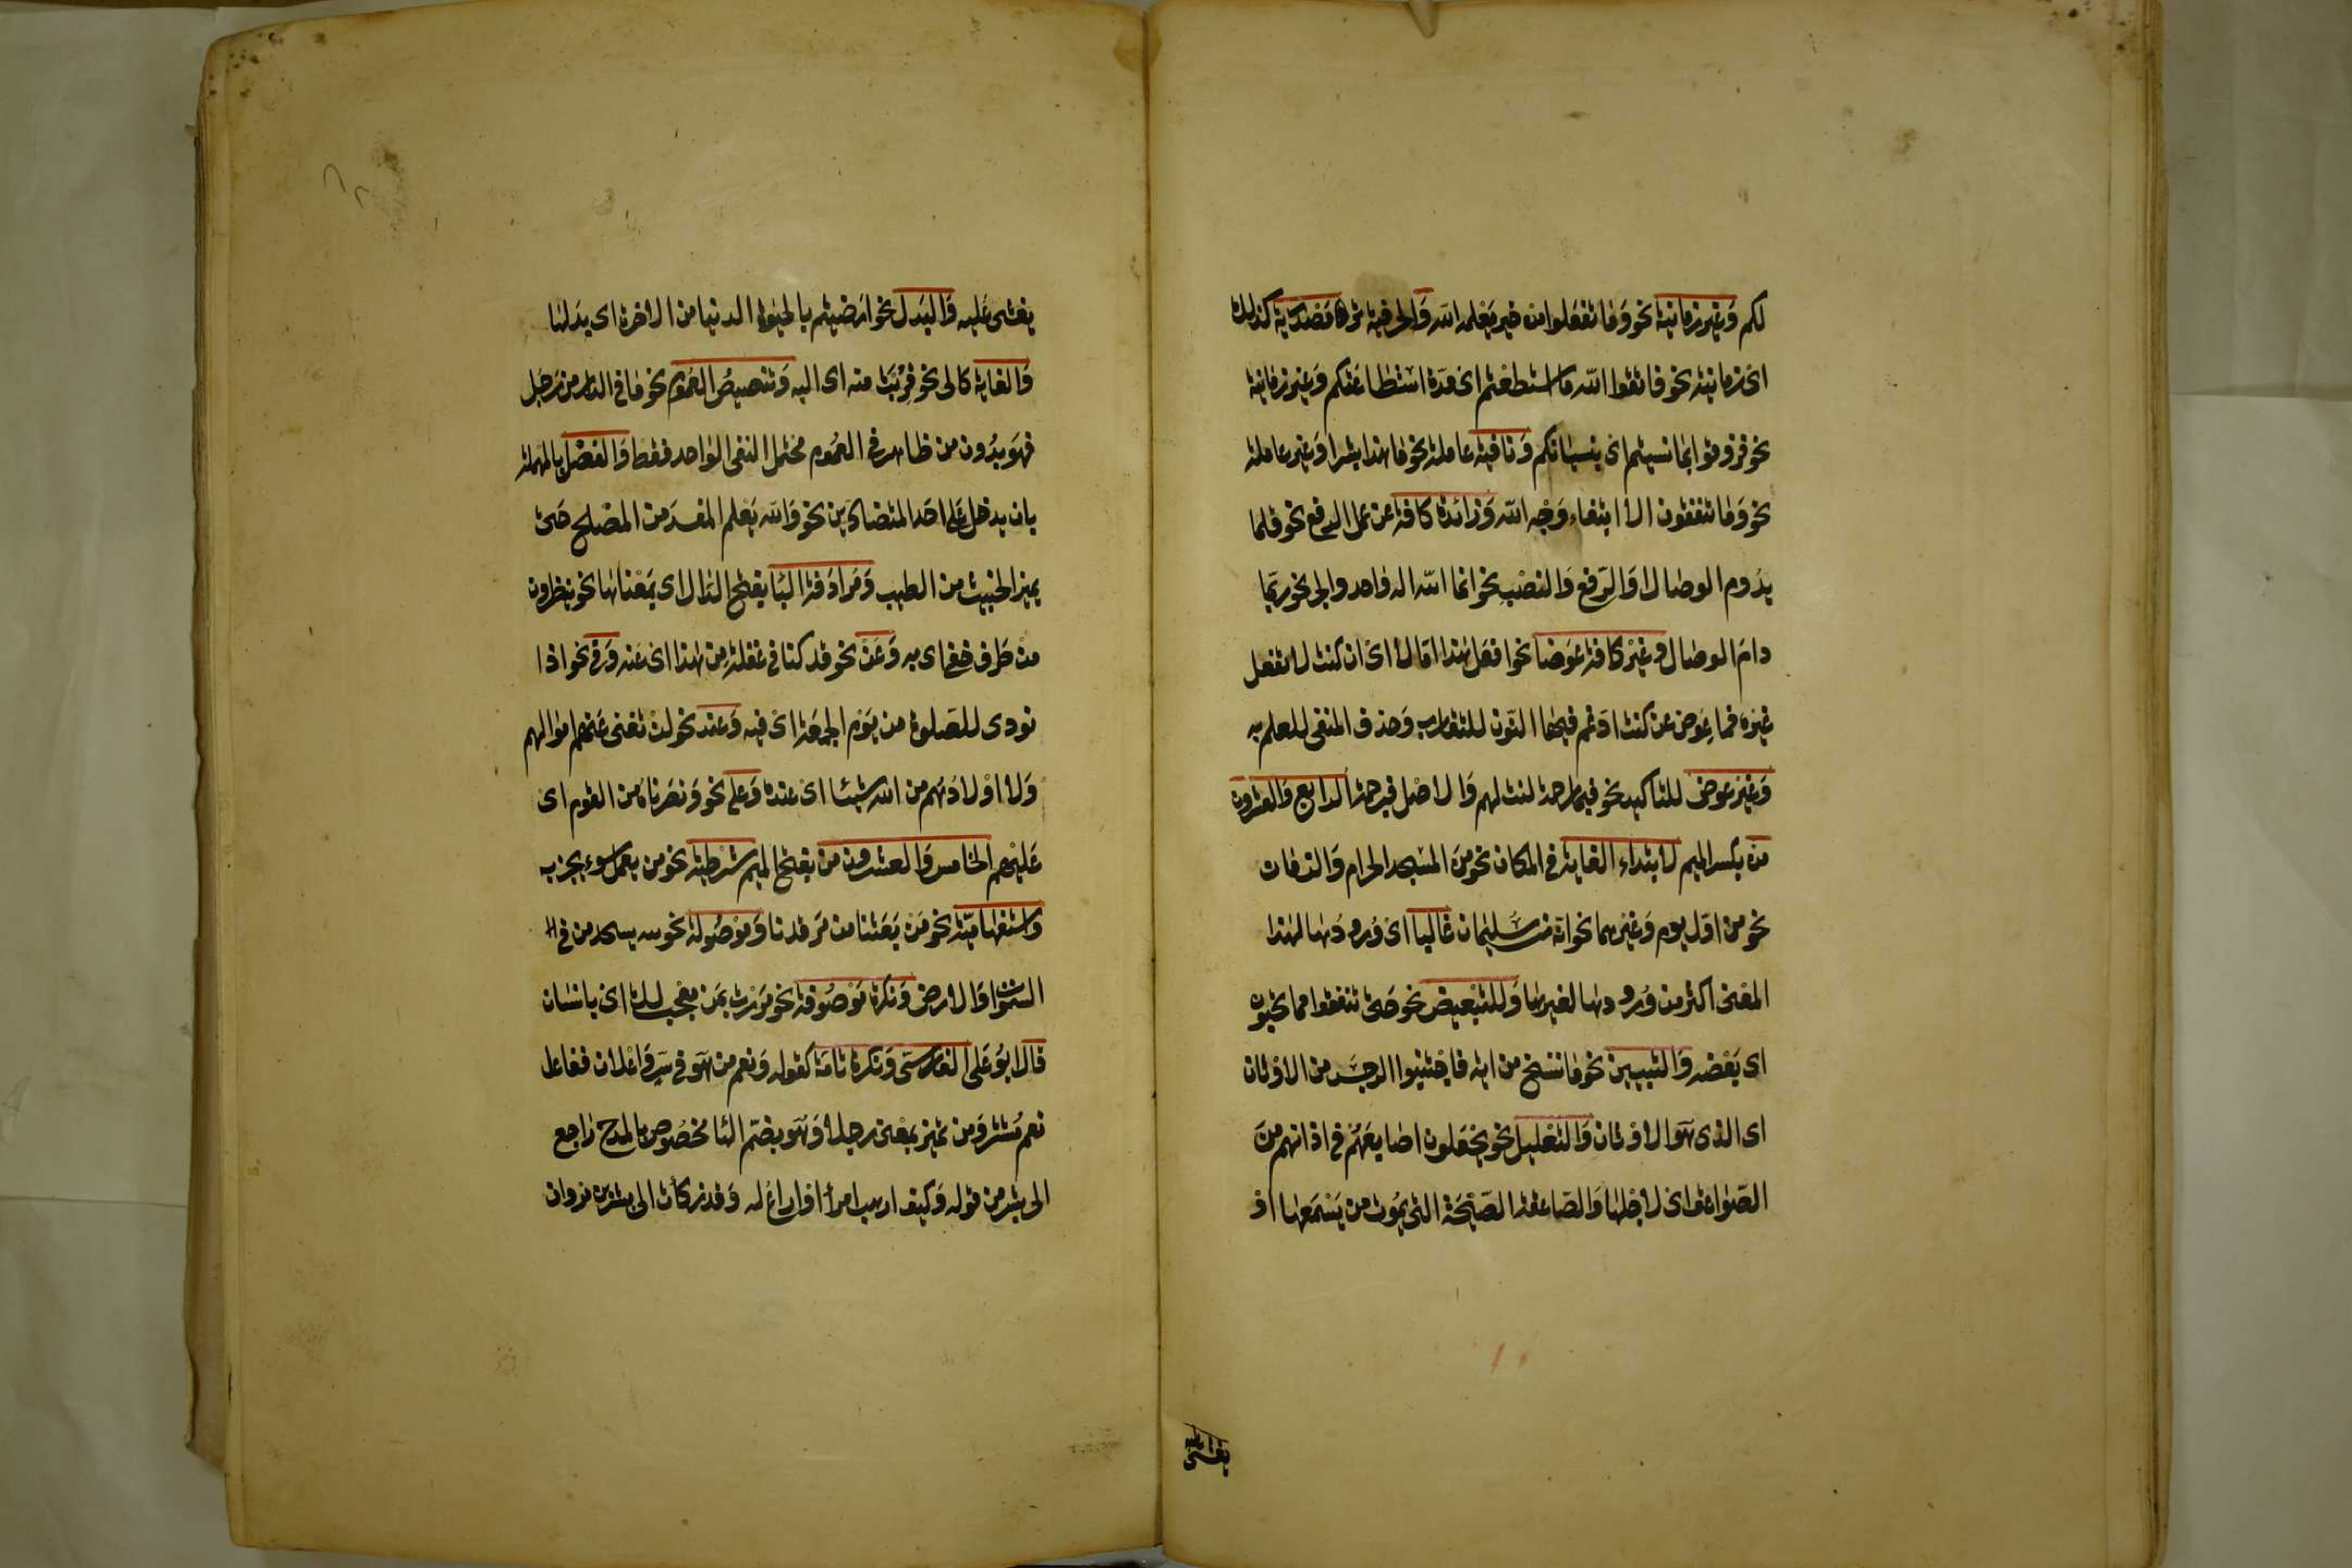 لكم وغير زمانية نحو وما تفعلوا من خير يعلمه الله والحرفية ترد مصدرية كذلك
اى زمانية نحو فاتقوا الله ما استطعتم اى مدة استطاعتكم وغير زمانية
نحو فذوقوا بما نسيتم اى بنسيانكم ونافية عاملة نحو ما هذا بشرا وغير عاملة
نحو وما تنفقون الا ابتغاء وجه الله وزائدة كافة عن عمل الرفع نحو قلما
يدوم الوصال او الرفع والنصب نحو انما الله اله واحد والجر نحو ربما
دام الوصال وغير كافة عوضا نحو افعل هذا اما لا اى ان كنت لا تفعل
غيره فما عوض عن كنت ادغم فيها النون للتقارب وحذف المنفى للعلم به
وغير عوض للتاكيد نحو فبما رحمة لنت لهم والاصل فبرحمة الرابع والعشرون
من بكسر الميم لابتداء الغاية فى المكان نحو من المسجد الحرام والزمان
نحو من اول يوم وغيرهما نحو انه من سليمان غالبا اى ورودها لهذا
المعنى اكثر من ورودها لغيرها وللتبعيض نحو حتى تنفقوا مما تحبون
اى بعضه والتبيين نحو ما ننسخ من اية فاجتنبوا الرجس من الاوثان
اى الذى هو الاوثان والتعليل نحو يجعلون اصابعهم فى اذانهم من
الصواعق اى لاجلها والصاعقة الصيحة التى يموت من يسمعها او
يغشى عليه
يغشى عليه والبدل نحو ارضيتم بالحيوة الدنيا من الاخرة اى بدلها
والغاية كالى نحو قربت منه اى اليه وتنصيص العموم نحو ما فى الدار من رجل
فهو بدون من ظاهر فى العموم محتمل لنفى الواحد فقط والفصل بالمهملة
بان يدخل على احد المتضادين نحو والله يعلم المفسد من المصلح حتى
يميز الخبيث من الطيب ومرادفة الباء بفتح الدال اى بمعناها نحو ينظرون
من طرف خفى اى به وعن نحو قد كنا فى غفلة من هذا اى عنه وفى نحو اذا
نودى للصلوة من يوم الجمعة اى فيه وعند نحو لن تغنى عنهم اموالهم
ولا اولادهم من الله شيئا اى عنده وعلى نحو ونصرناه من القوم اى
عليهم الخامس والعشرون من بفتح الميم شرطية نحو من يعمل سوء يجز به
واستفهامية نحو من بعثنا من مرقدنا وموصولة نحو لله يسجد من فى
السموات والارض ونكرة موصوفة نحو مررت بمن معجب لك اى بانسان
قال ابو على الفارسى ونكرة تامة كقوله ونعم من هو فى سر واعلان ففاعل
نعم مستتر ومن تميز بمعنى رجلا وهو بضم الها مخصوص بالمدح راجع
الى بشر من قوله وكيف ارهب امرا او اراع له وقد زكأت الى بشر بن مروان